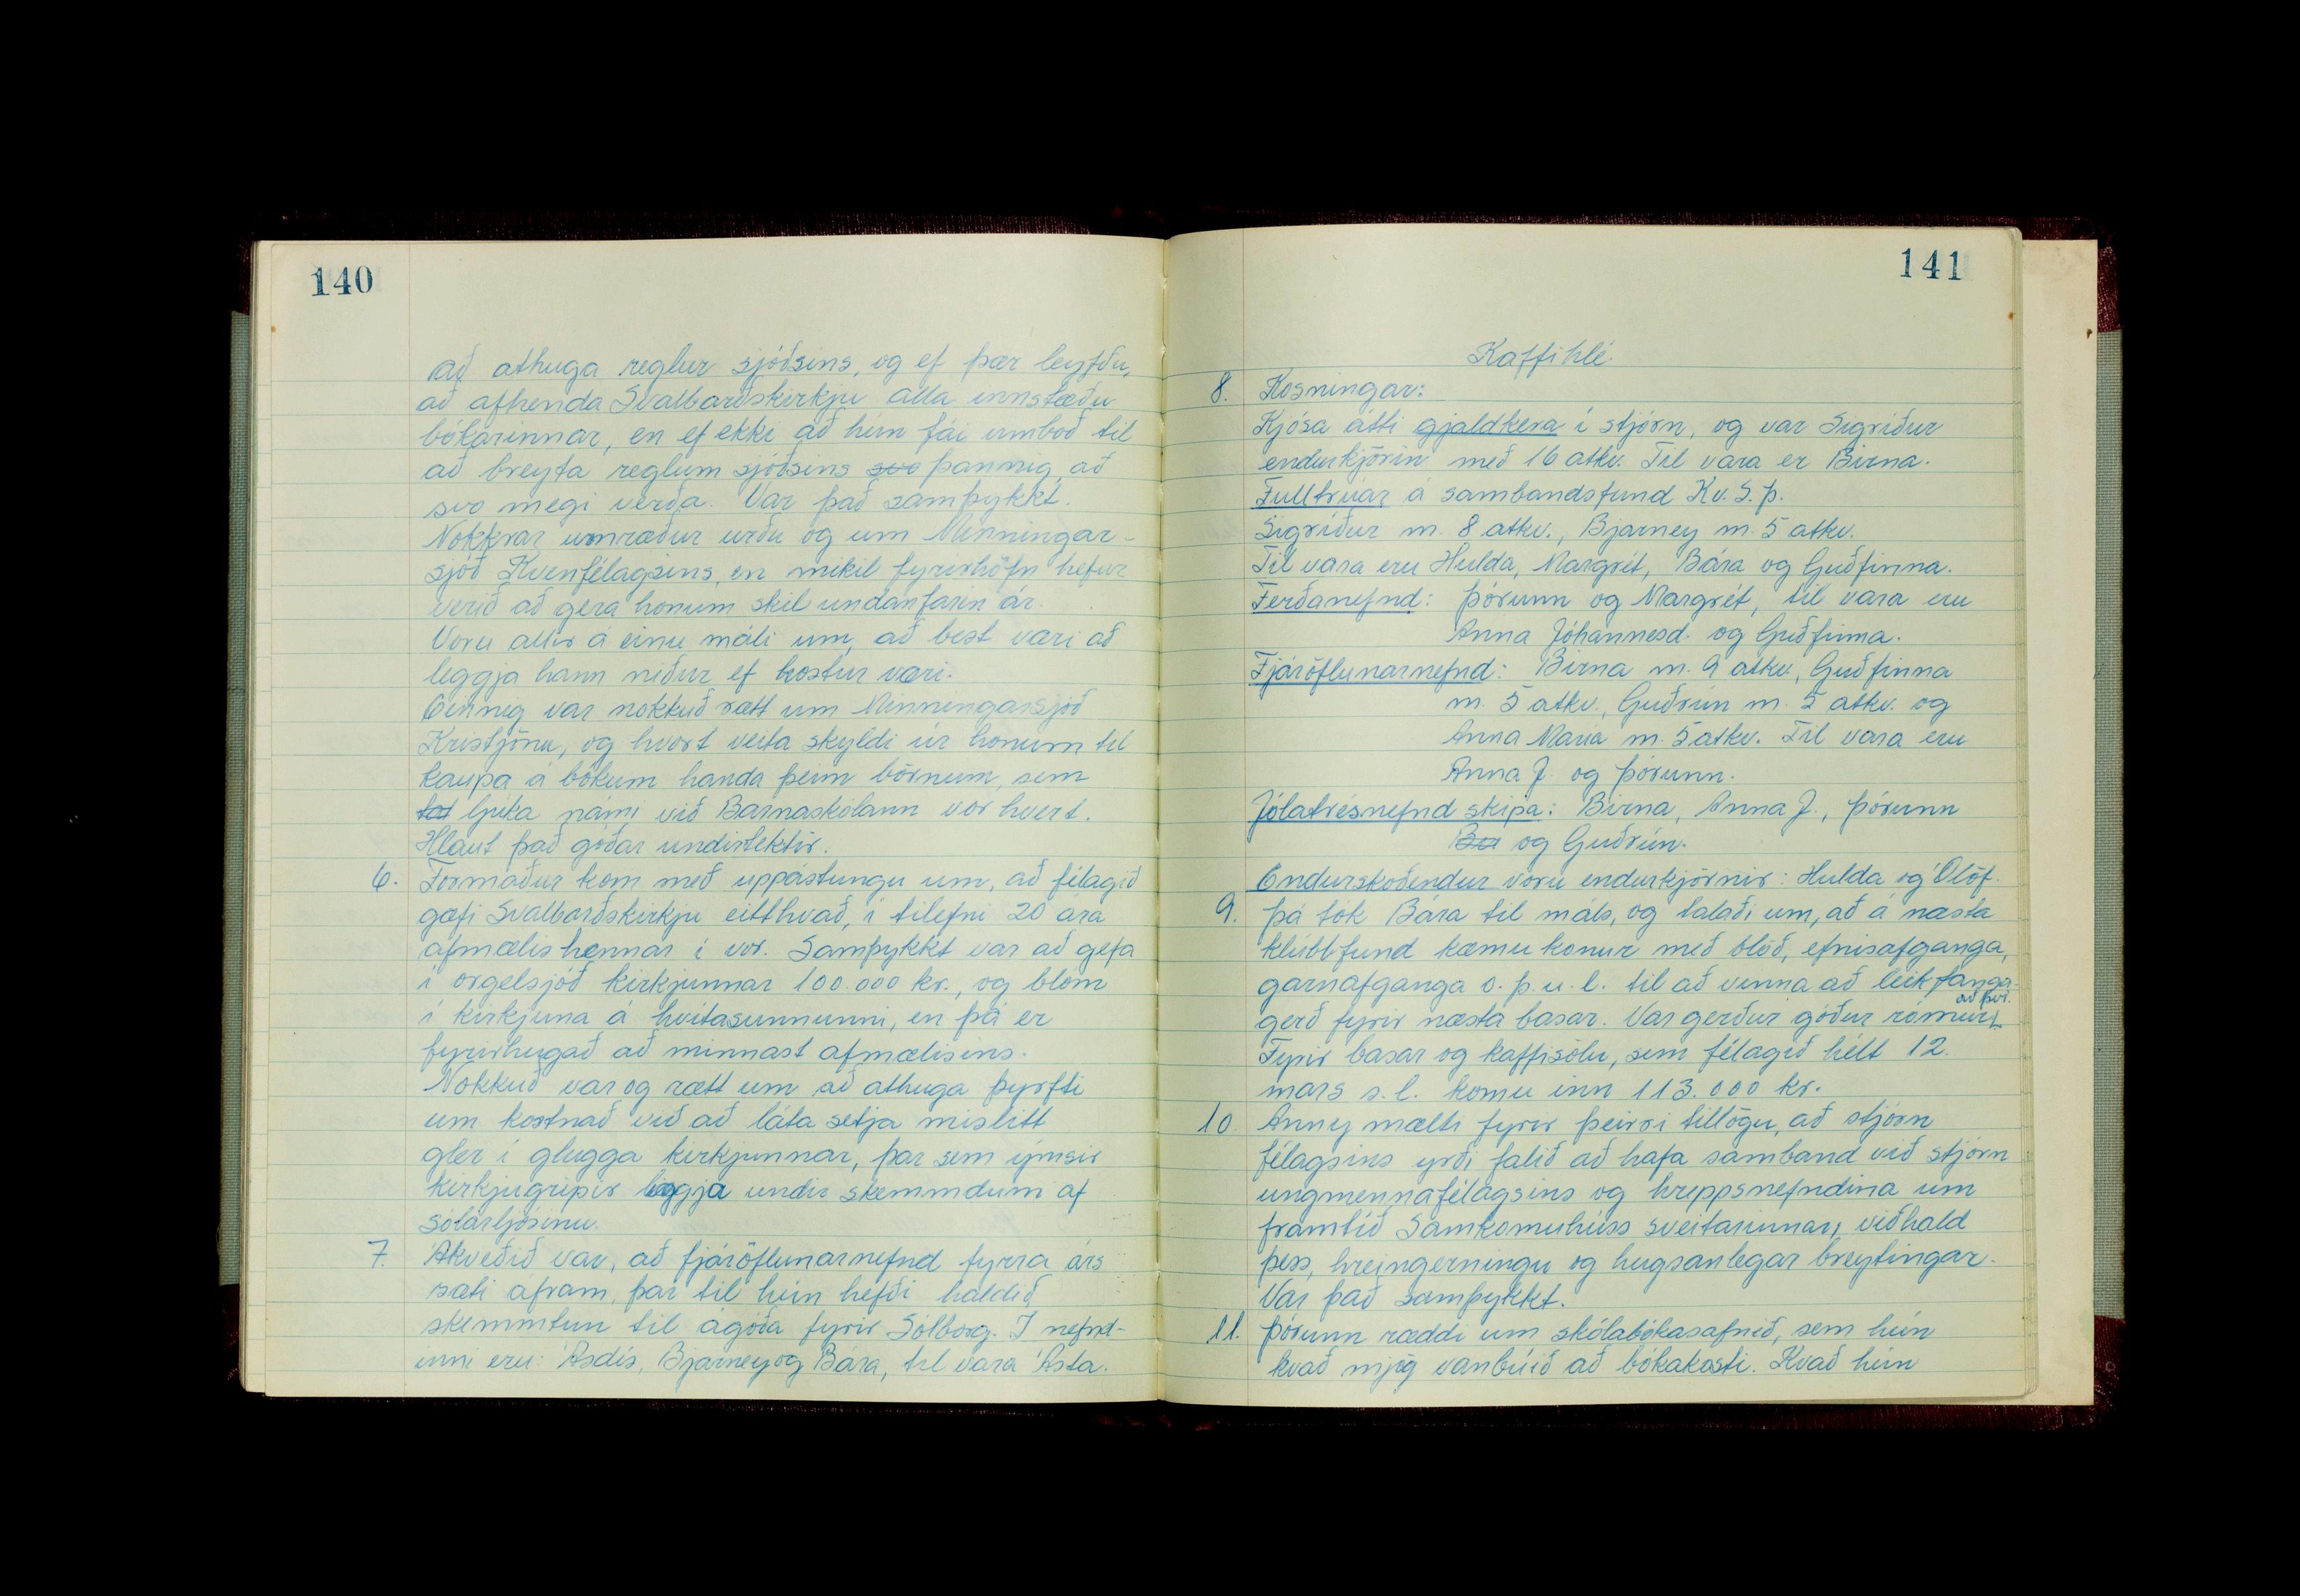 140
að athuga reglur sjóðsins, og ef þær leyfðu,
að afhenda Svalbarðskirkju alla innstæðu
bókarinnar, en ef ekki að hún fái umboð til
að breyta reglum sjóðsins svo þannig, að
svo megi verða. Var það samþykkt.
Nokkrar umræður urðu og um Minningar-
sjóð Kvenfélagsins, en mikil fyrirhöfn hefur
verið að gera honum skil undanfarin ár.
Voru allir á einu máli um, að best væri að
leggja hann niður ef kostur væri.
Einnig var nokkuð rætt um Minningarsjóð
Kristjönu, og hvort veita skyldi úr honum til
kaupa á bókum handa þeim börnum, sem
ljúka námi við Barnaskólann vor hvert.
Hlaut það góðar undirtektir.
6. Formaður kom með uppástungu um, að félagið
gæfi Svalbarðskirkju eitthvað, í tilefni 20 ára
afmælis hennar í vor. Samþykkt var að gefa
í orgelsjóð kirkjunnar 100.000 kr., og blóm
í kirkjuna á hvítasunnunni, en þá er
fyrirhugað að minnast afmælisins.
Nokkuð var og rætt um að athuga þyrfti
um kostnað við að láta setja mislitt
gler í glugga kirkjunnar, þar sem ýmsir
kirkjugripir liggja undir skemmdum af
sólarljósinu.
7. Ákveðið var, að fjáröflunarnefnd fyrra árs
sæti áfram, þar til hún hefði haldið
skemmtun til ágóða fyrir Sólborg. Í nefnd-
inni eru: Ásdís, Bjarney og Bára, til vara Ásta.
141
Kaffihlé.
8. Kosningar:
Kjósa átti gjaldkera í stjórn, og var Sigríður
endurkjörin með 16 atkv. Til vara er Birna.
Fulltrúar á sambandsfund Kv. S. Þ.
Sigríður m. 8 atkv., Bjarney m. 5 atkv.
Til vara eru Hulda, Margrét, Bára og Guðfinna.
Ferðanefnd: Þórunn og Margrét, til vara eru
Anna Jóhannesd. og Guðfinna.
Fjáröflunarnefnd: Birna m. 9 atkv., Guðfinna
m. 5 atkv., Guðrún m. 5 atkv. og
Anna María m. 5 atkv. Til vara eru
Anna J. og Þórunn.
Jólatrésnefnd skipa: Birna, Anna J., Þórunn
Ba og Guðrún.
Endurskoðendur voru endurkjörnir: Hulda og Ólöf.
9. Þá tók Bára til máls, og talaði um, að á næsta
klúbbfund kæmu konur með blöð, efnisafganga,
garnafganga o. þ. u. l. til að vinna að leikfanga-
gerð fyrir næsta basar. Var gerður góður rómur að því.
Fyrir basar og kaffisölu, sem félagið hélt 12.
mars s.l. komu inn 113.000 kr.
10. Anny mælti fyrir þeirri tillögu, að stjórn
félagsins yrði falið að hafa samband við stjórn
ungmennafélagsins og hreppsnefndina um
framtíð Samkomuhúss sveitarinnar, viðhald
þess, hreingerningu og hugsanlegar breytingar.
Var það samþykkt.
11. Þórunn ræddi um skólabókasafnið, sem hún
kvað mjög vanbúið að bókakosti. Kvað hún